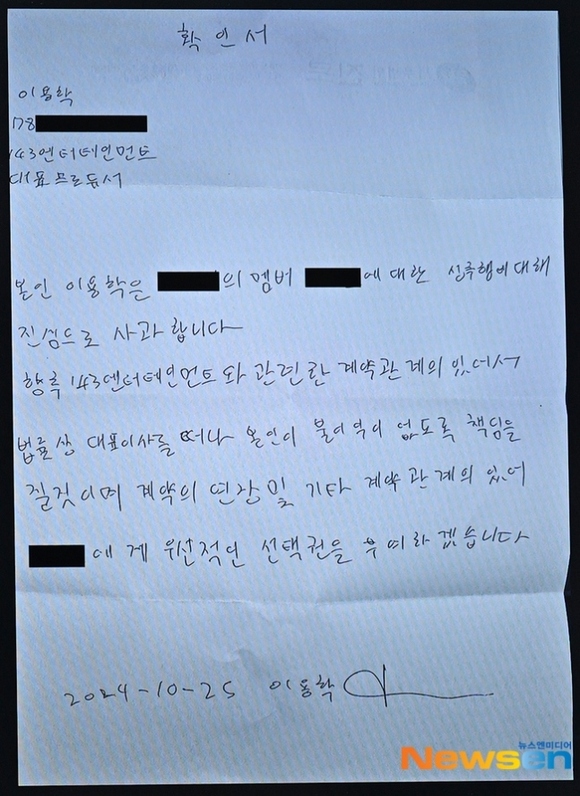 확인서
이용학
178
143엔터테인먼트
대표프로듀서
본인 이용학은 의 멤버 에 대한 성추행에대해
진심으로 사과합니다
향후 143엔터테인먼트와 관련한 계약관계의 있어서
법률상 대표이사를 떠나 본인이 불이익이 없도록 책임을
질것이며 계약의 연장 및 기타 계약관계의 있어
에게 우선적인 선택권을 부여하겠습니다
2024-10-25 이용학
뉴스엔미디어
Newsen